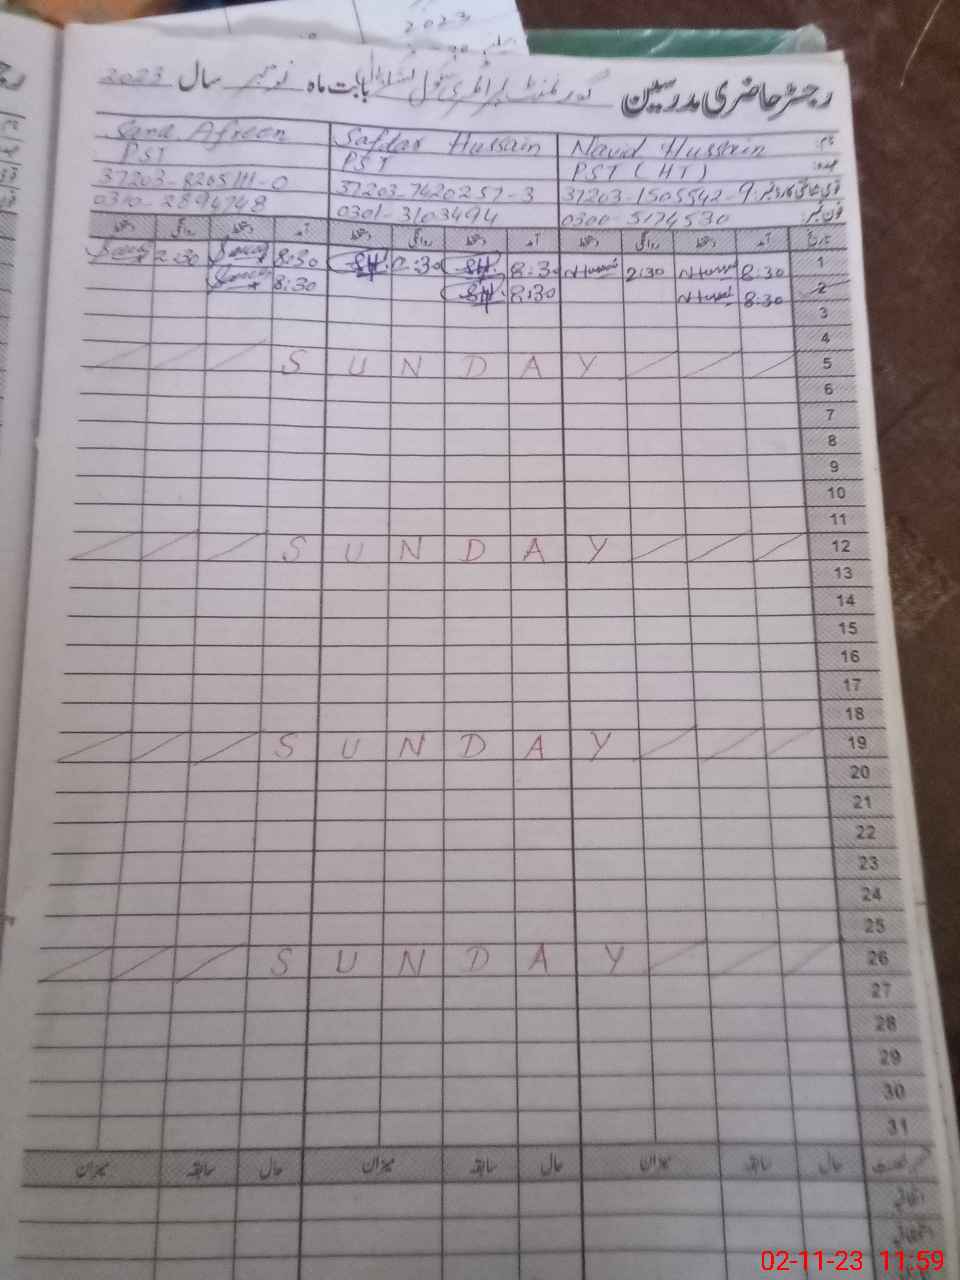 2023
رجسٹر حاضری مدرسین گورنمنٹ پرائمری سکول بابت ماہ نومبر سال 2023
نام Navid Hussain Safdar Hussain Sana Afreen
عہدہ PST (HT) PST PST
37203-1505542-9 37203-7420257-3 37203-8205111-0
فون نمبر 0300-5174530 0301-3103494 0310-2894748
تاریخ آمد دستخط روانگی دستخط آمد دستخط روانگی دستخط آمد دستخط روانگی دستخط
1 8:30 NHussain 2:30 NHussain 8:30 SH 2:30 SH 8:30 2:30
2 8:30 NHussain 8:30 SH 8:30
3
4
5 SUNDAY
6
7
8
9
10
11
12 SUNDAY
13
14
15
16
17
18
19 SUNDAY
20
21
22
23
24
25
26 SUNDAY
27
28
29
30
31
حال سابقہ میزان حال سابقہ میزان حال سابقہ میزان
اتفاقیہ
02-11-23 11:59